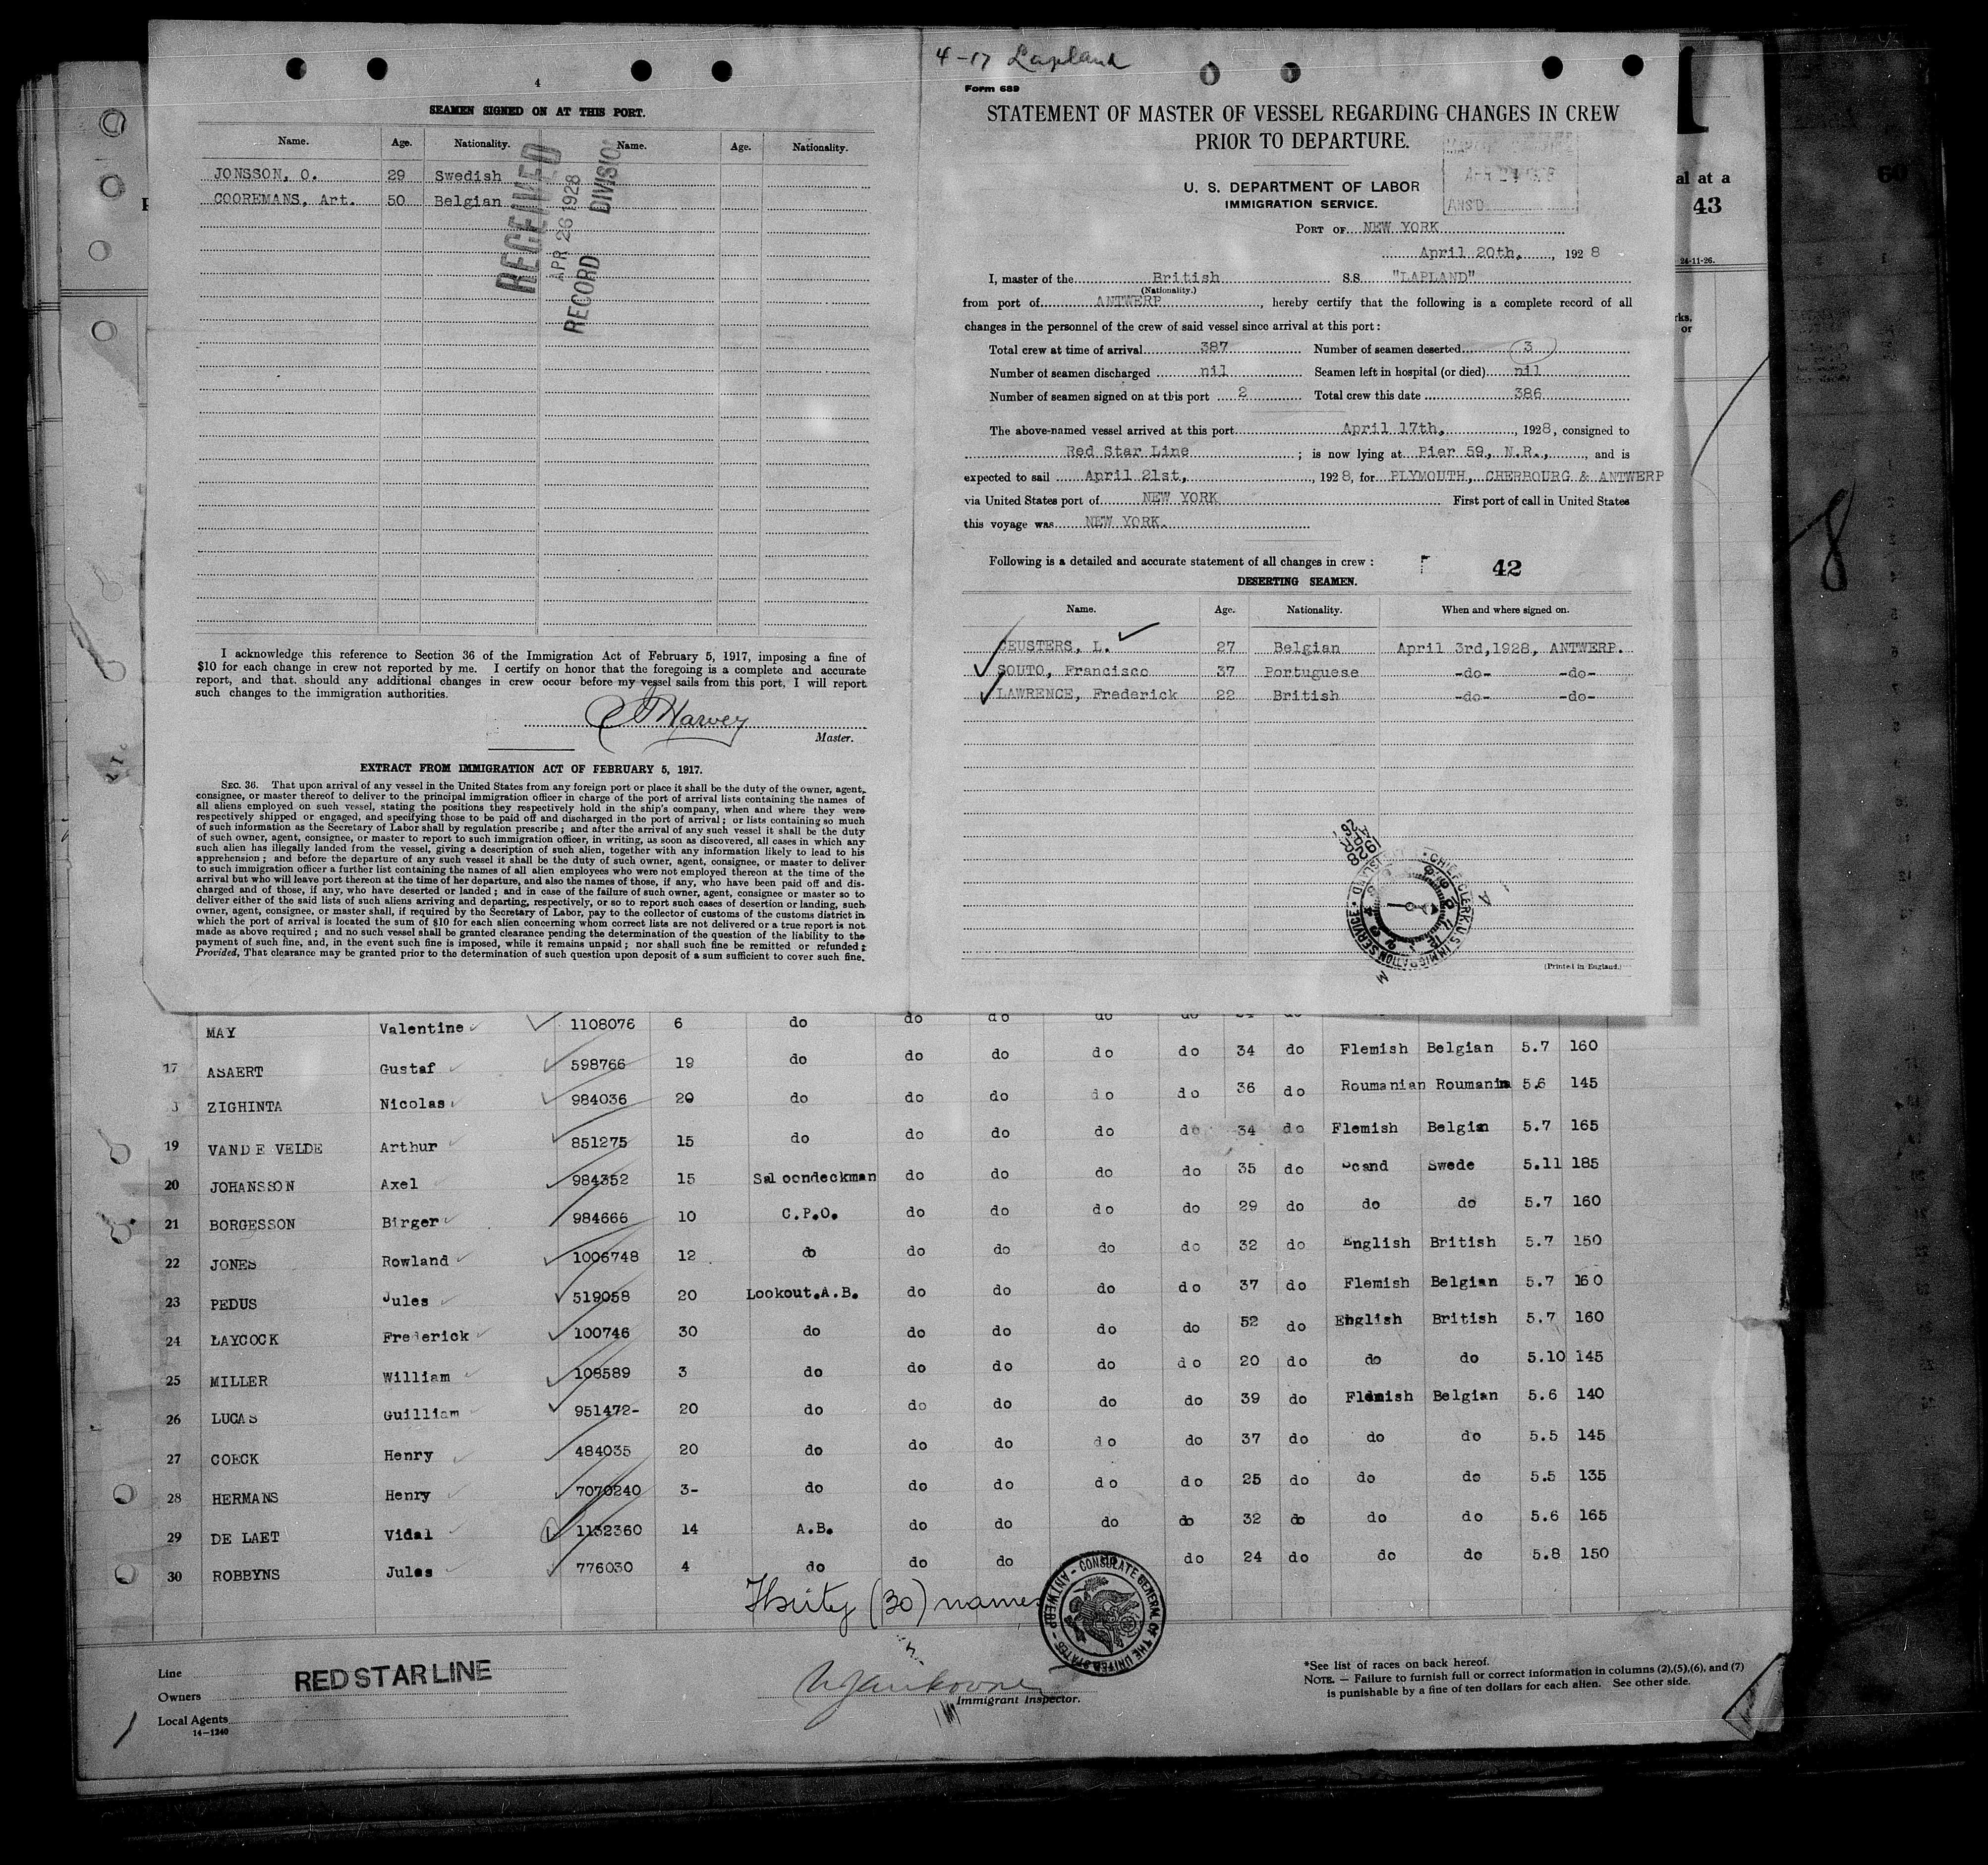 4
SEAMEN SIGNED ON AT THIS PORT.
Name. Age. Nationality. Name. Age. Nationality.
JONSSON, O. 29 Swedish
COOREMANS, Art. 50 Belgian
RECEIVED
APR 26 1928
RECORD DIVISION
I acknowledge this reference to Section 36 of the Immigration Act of February 5, 1917, imposing a fine of
$10 for each change in crew not reported by me. I certify on honor that the foregoing is a complete and accurate
report, and that. should any additional changes in crew occur before my vessel sails from this port, I will report
such changes to the immigration authorities.
Harvey
Master.
EXTRACT FROM IMMIGRATION ACT OF FEBRUARY 5, 1917.
SEC. 36. That upon arrival of any vessel in the United States from any foreign port or place it shall be the duty of the owner, agent,
consignee, or master thereof to deliver to the principal immigration officer in charge of the port of arrival lists containing the names of
all aliens employed on such vessel, stating the positions they respectively hold in the ship's company, when and where they were
respectively shipped or engaged, and specifying those to be paid off and discharged in the port of arrival; or lists containing so much
of such information as the Secretary of Labor shall by regulation prescribe; and after the arrival of any such vessel it shall be the duty
of such owner, agent, consignee, or master to report to such immigration officer, in writing, as soon as discovered, all cases in which any
such alien has illegally landed from the vessel, giving a description of such alien, together with any information likely to lead to his
apprehension; and before the departure of any such vessel it shall be the duty of such owner, agent, consignee, or master to deliver
to such immigration officer a further list containing the names of all alien employees who were not employed thereon at the time of the
arrival but who will leave port thereon at the time of her departure, and also the names of those, if any, who have been paid off and dis-
charged and of those, if any, who have deserted or landed; and in case of the failure of such owner, agent, consignee or master so to
deliver either of the said lists of such aliens arriving and departing, respectively, or so to report such cases of desertion or landing, such
owner, agent, consignee, or master shall, if required by the Secretary of Labor, pay to the collector of customs of the customs district in
which the port of arrival is located the sum of $10 for each alien concerning whom correct lists are not delivered or a true report is not
made as above required; and no such vessel shall be granted clearance pending the determination of the question of the liability to the
payment of such fine, and, in the event such fine is imposed, while it remains unpaid; nor shall such fine be remitted or refunded:
Provided, That clearance may be granted prior to the determination of such question upon deposit of a sum sufficient to cover such fine.
4-17 Lapland
Form 689
STATEMENT OF MASTER OF VESSEL REGARDING CHANGES IN CREW
PRIOR TO DEPARTURE.
U. S. DEPARTMENT OF LABOR
IMMIGRATION SERVICE.
PORT OF NEW YORK
April 20th, 1928
I, master of the British S.S. "LAPLAND"
(Nationality.)
from port of ANTWERP, hereby certify that the following is a complete record of all
changes in the personnel of the crew of said vessel since arrival at this port:
Total crew at time of arrival 387 Number of seamen deserted 3
Number of seamen discharged nil Seamen left in hospital (or died) nil
Number of seamen signed on at this port 2 Total crew this date 386
The above-named vessel arrived at this port April 17th, 1928, consigned to
Red Star Line; is now lying at Pier 59, N.R., and is
expected to sail April 21st, 1928, for PLYMOUTH, CHERBOURG & ANTWERP
via United States port of NEW YORK First port of call in United States
this voyage was NEW YORK.
Following is a detailed and accurate statement of all changes in crew: 42
DESERTING SEAMEN.
Name. Age. Nationality. When and where signed on.
CEUSTERS, L. 27 Belgian April 3rd, 1928, ANTWERP.
SOUTO, Francisco 37 Portuguese -do- -do-
LAWRENCE, Frederick 22 British -do- -do-
CHIEF CLERK U.S. IMMIGRATION SERVICE
(Printed in England.)
al at a
43
24-11-26.
rks,
or
60
8
MAY Valentine 1108076 6 do do do do do
17 ASAERT Gustaf 598766 19 do do do do do 34 do Flemish Belgian 5.7 160
ZIGHINTA Nicolas 984036 20 do do do do do 36 do Roumanian Roumanin 5.6 145
19 VANDE VELDE Arthur 851275 15 do do do do do 34 do Flemish Belgin 5.7 165
20 JOHANSSON Axel 984352 15 Saloondeckman do do do do 35 do Scand Swede 5.11 185
21 BORGESSON Birger 984666 10 C.P.O. do do do do 29 do do do 5.7 160
22 JONES Rowland 1006748 12 do do do do do 32 do English British 5.7 150
23 PEDUS Jules 519058 20 Lookout.A.B. do do do do 37 do Flemish Belgian 5.7 160
24 LAYCOCK Frederick 100746 30 do do do do do 52 do English British 5.7 160
25 MILLER William 108589 3 do do do do do 20 do do do 5.10 145
26 LUCAS Guilliam 951472- 20 do do do do do 39 do Flemish Belgian 5.6 140
27 COECK Henry 484035 20 do do do do do 37 do do do 5.5 145
28 HERMANS Henry 7070240 3- do do do do do 25 do do do 5.5 135
29 DE LAET Vidal 1132360 14 A.B. do do do do 32 do do do 5.6 165
30 ROBBYNS Jules 776030 4 do do do do do 24 do do do 5.8 150
Thirty (30) names
CONSULATE GENERAL OF THE UNITED STATES - ANTWERP -
Line RED STAR LINE
Owners
Local Agents
14-1240
Immigrant Inspector.
*See list of races on back hereof.
NOTE. — Failure to furnish full or correct information in columns (2),(5),(6), and (7)
is punishable by a fine of ten dollars for each alien. See other side.